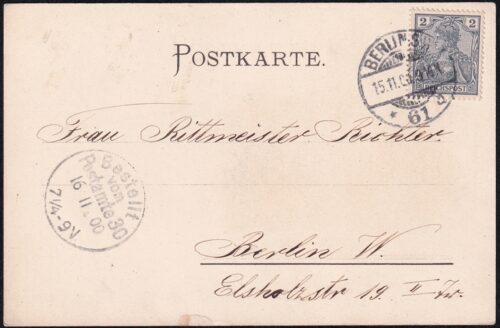 POSTKARTE.
2
REICHSPOST
BERLIN S.
15.11.00
* 61
Frau Rittmeister Richter
Bestellt
vom
Postamte 30
16 11 00
7¼-8½ V.
Berlin W.
Elsholzstr 19 II Tr.